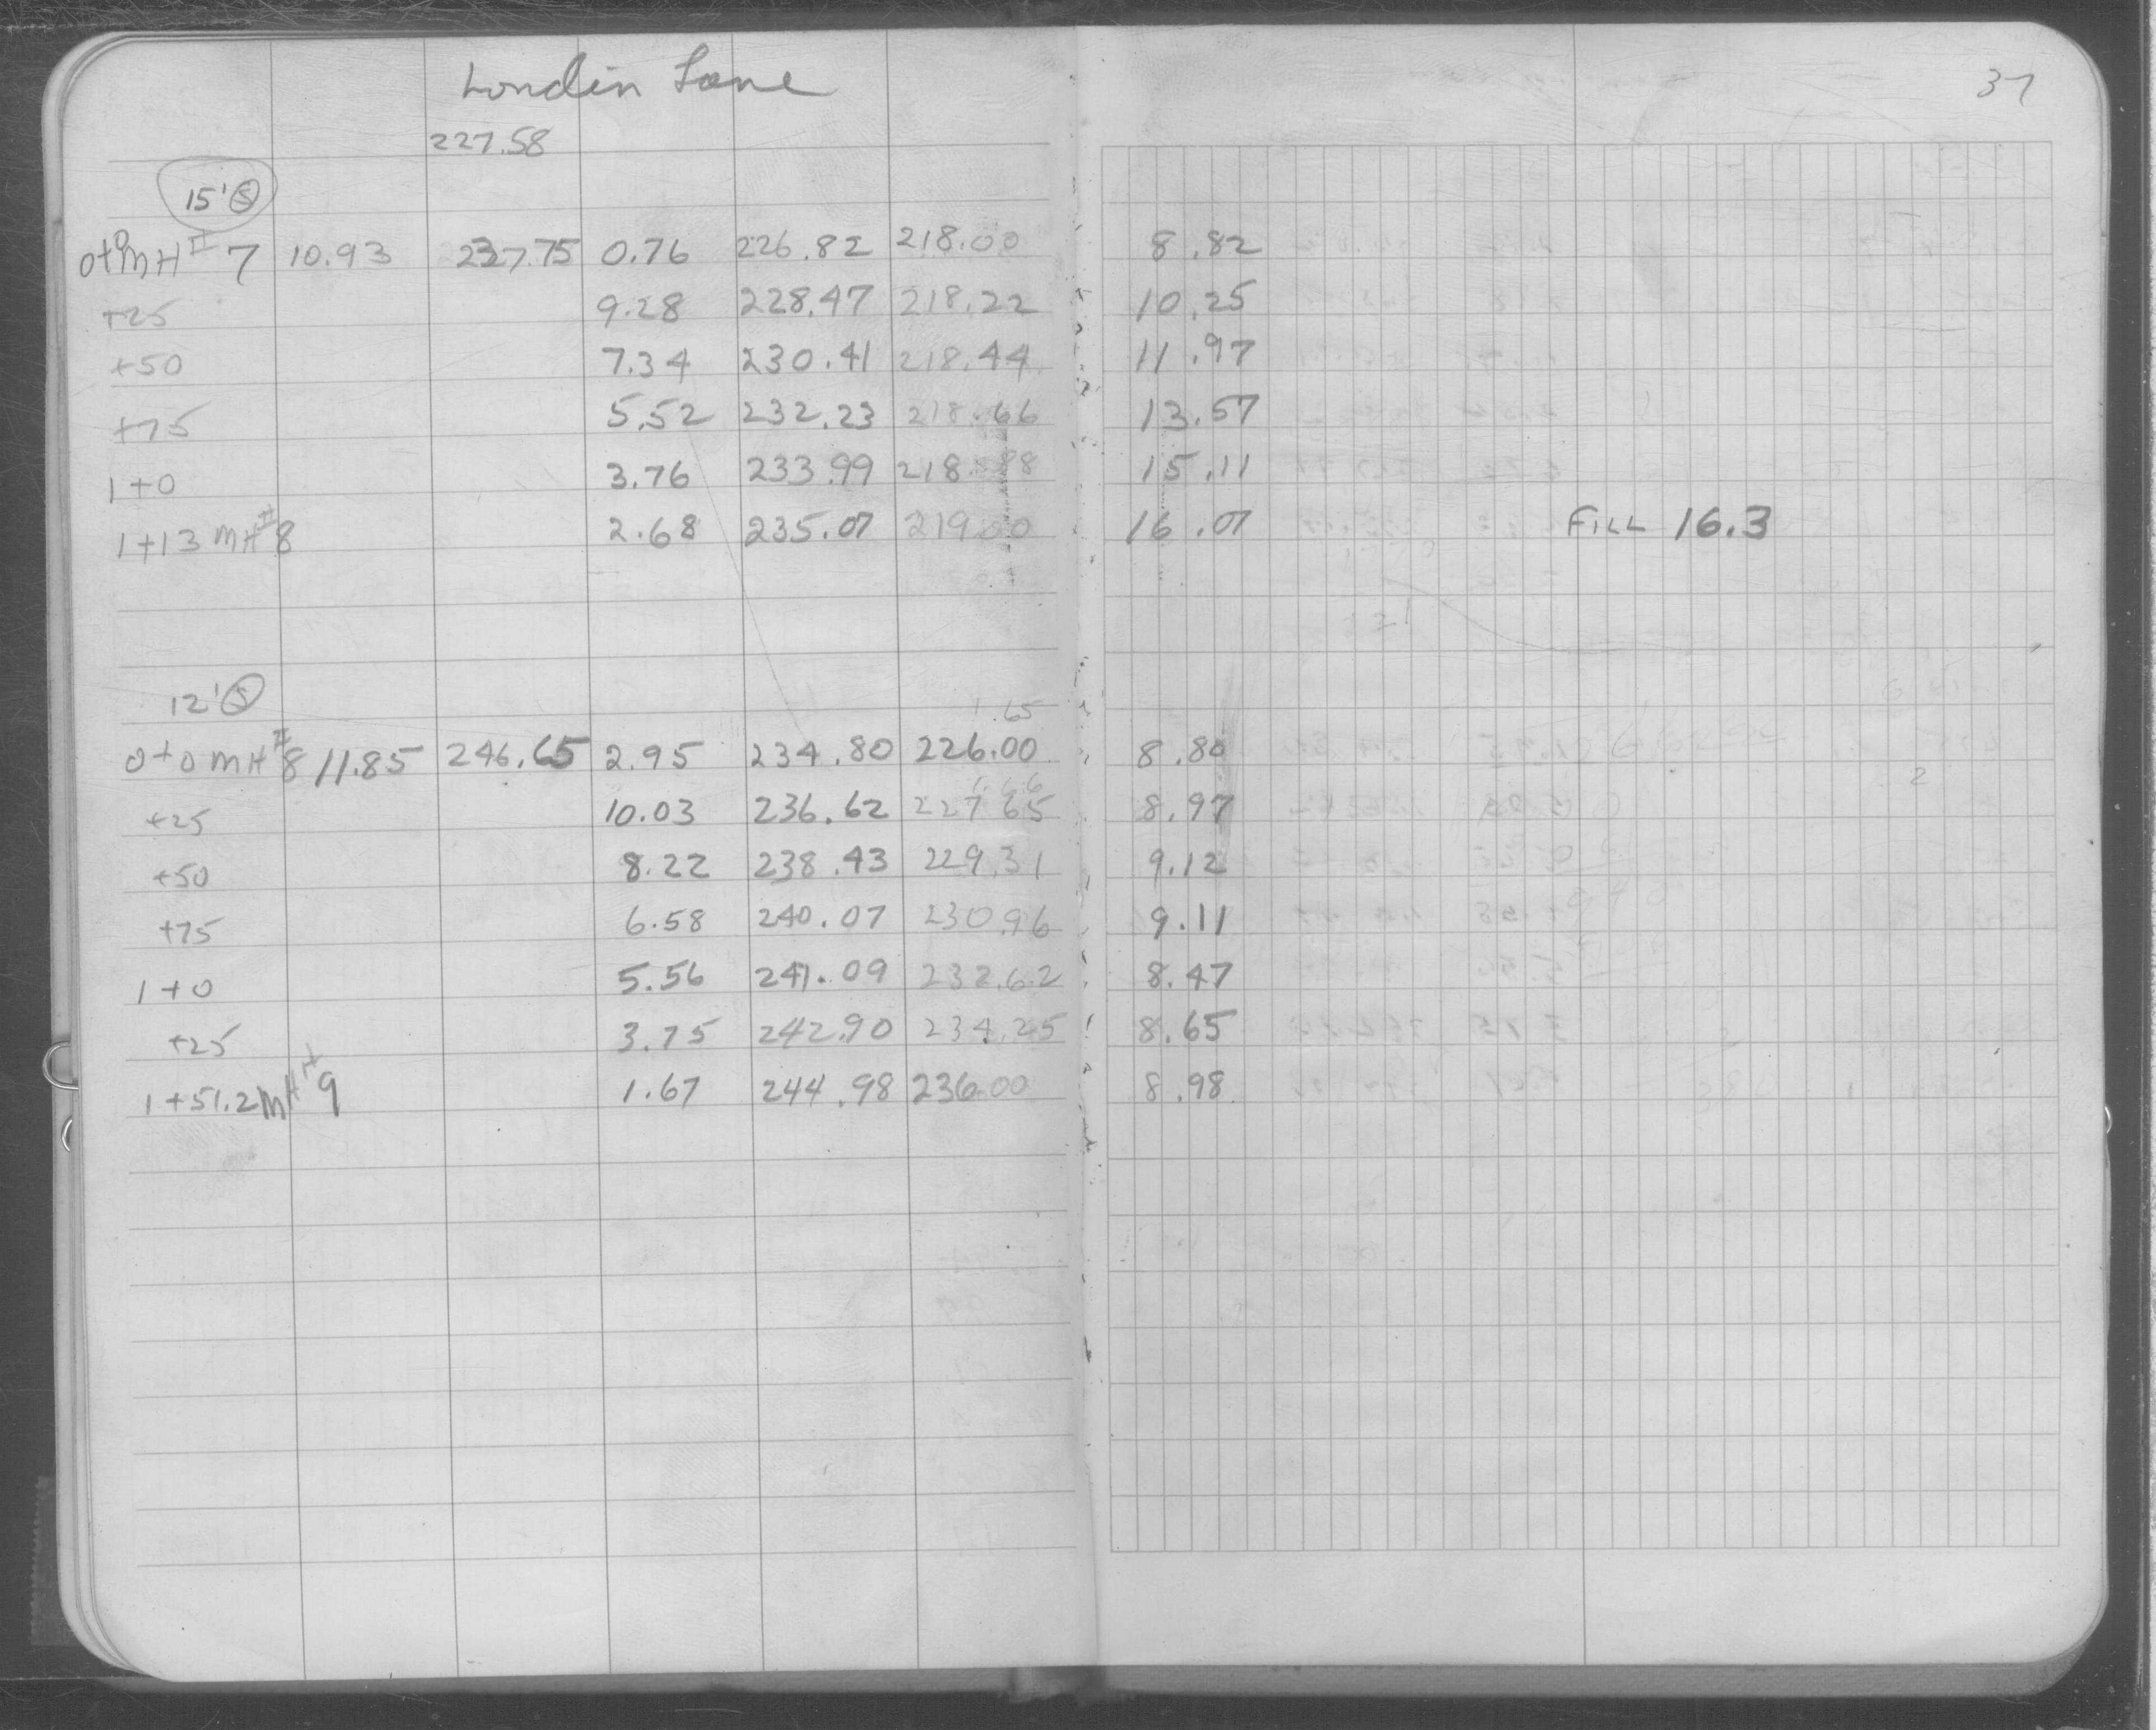 Londin Lane
37
227.58
15' S
0+0 MH # 7 10.93 237.75 0.76 226.82 218.00 8.82
+25 9.28 228.47 218.22 10.25
+50 7.34 230.41 218.44 11.97
+75 5.52 232.23 218.66 13.57
1+0 3.76 233.99 218.88 15.11
1+13 MH # 8 2.68 235.07 219.00 16.07 FILL 16.3
12' S
1.65
0+0 MH # 8 11.85 246.65 2.95 234.80 226.00 8.80
1.66
+25 10.03 236.62 227.65 8.97
+50 8.22 238.43 229.31 9.12
+75 6.58 240.07 230.96 9.11
1+0 5.56 241.09 232.62 8.47
+25 3.75 242.90 234.25 8.65
1+51.2 MH # 9 1.67 244.98 236.00 8.98